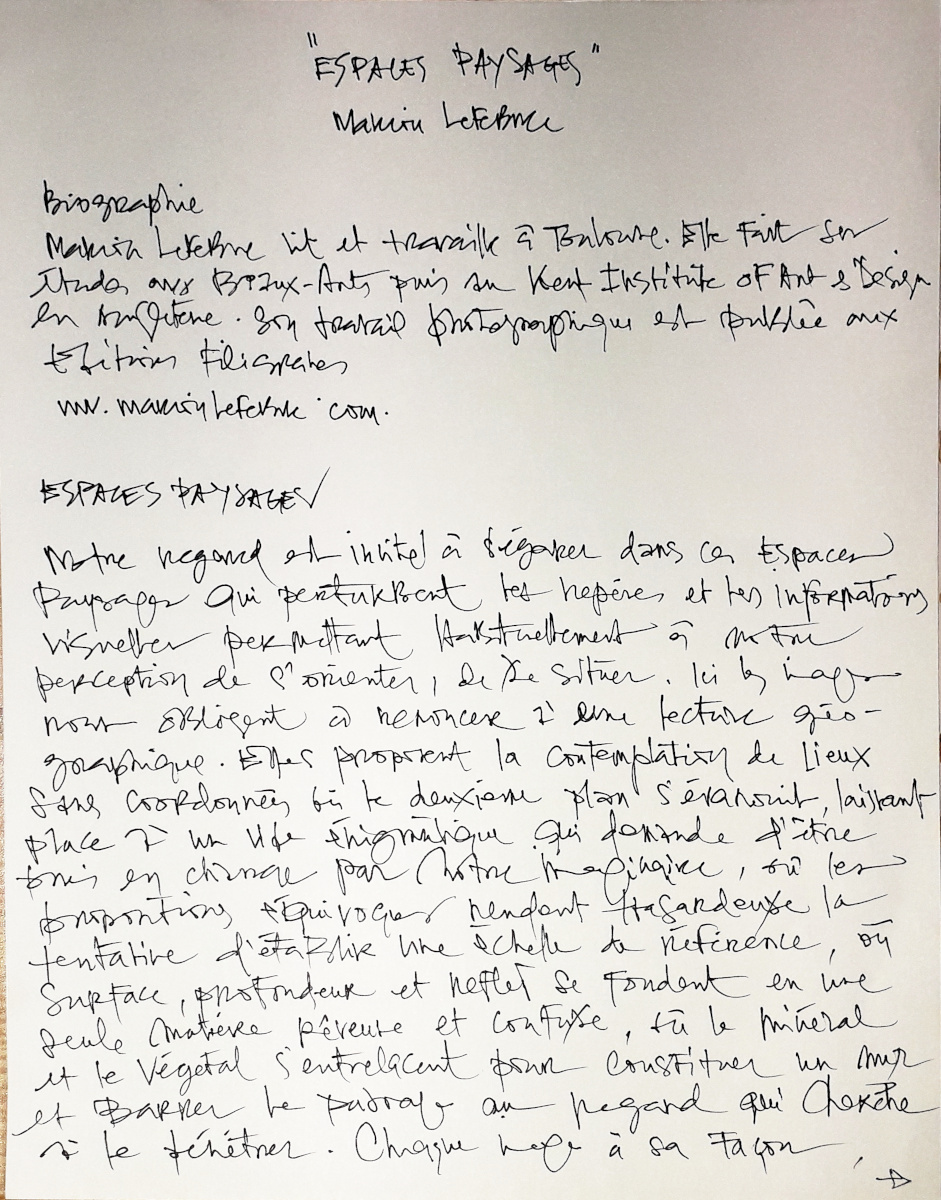 "ESPACES PAYSAGES"
Marion Lefebvre
Biographie
Marion Lefebvre vit et travaille à Toulouse. Elle fait ses
études aux Beaux-Arts puis au Kent Institute of Art & Design
en Angleterre. Son travail photographique est publiée aux
Editions Filigranes
www.marionlefebvre.com.
ESPACES PAYSAGES
Notre regard est invité à s'égarer dans ces Espaces
Paysages qui perturbent les repères et les informations
visuelles permettant habituellement à notre
perception de s'orienter, de se situer. Ici les images
nous obligent à renoncer à une lecture géo-
graphique. Elles proposent la contemplation de lieux
sans coordonnées où le deuxième plan s'évanouit, laissant
place à un vide énigmatique qui demande d'être
pris en charge par notre imaginaire, où les
proportions équivoques rendent hasardeuse la
tentative d'établir une échelle de référence, où
surface, profondeur et reflet se fondent en une
seule matière et confuse, où le minéral
et le végétal s'entrelacent pour constituer un mur
et barrer le passage au regard qui cherche
à le pénétrer. Chaque image à sa façon,